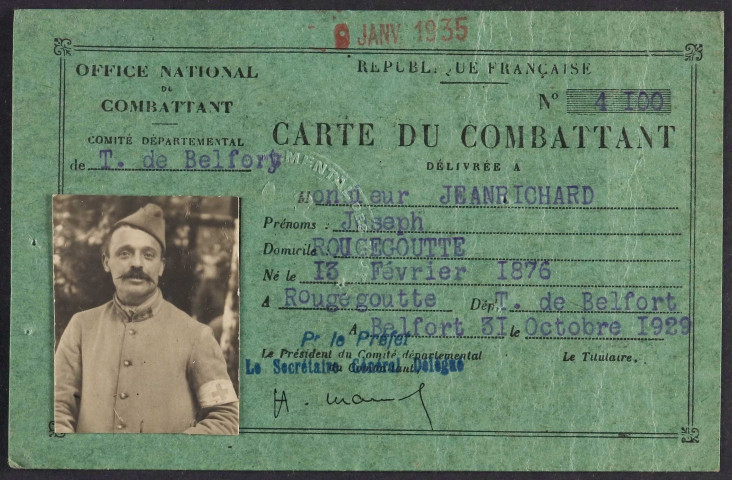 9 JANV 1935
OFFICE NATIONAL
DU
COMBATTANT
COMITÉ DÉPARTEMENTAL
de T. de Belfort
RÉPUBLIQUE FRANÇAISE
N° 4 100
CARTE DU COMBATTANT
DÉLIVRÉE A
Monsieur JEANRICHARD
Prénoms : Joseph
Domicile ROUGEGOUTTE
Né le 13 Février 1876
A Rougegoutte Dép. T. de Belfort
A Belfort 31 le Octobre 1929
Pr le Préfet
Le Président du Comité départemental Le Titulaire.
du Combattant
Le Secrétaire Général Délégué